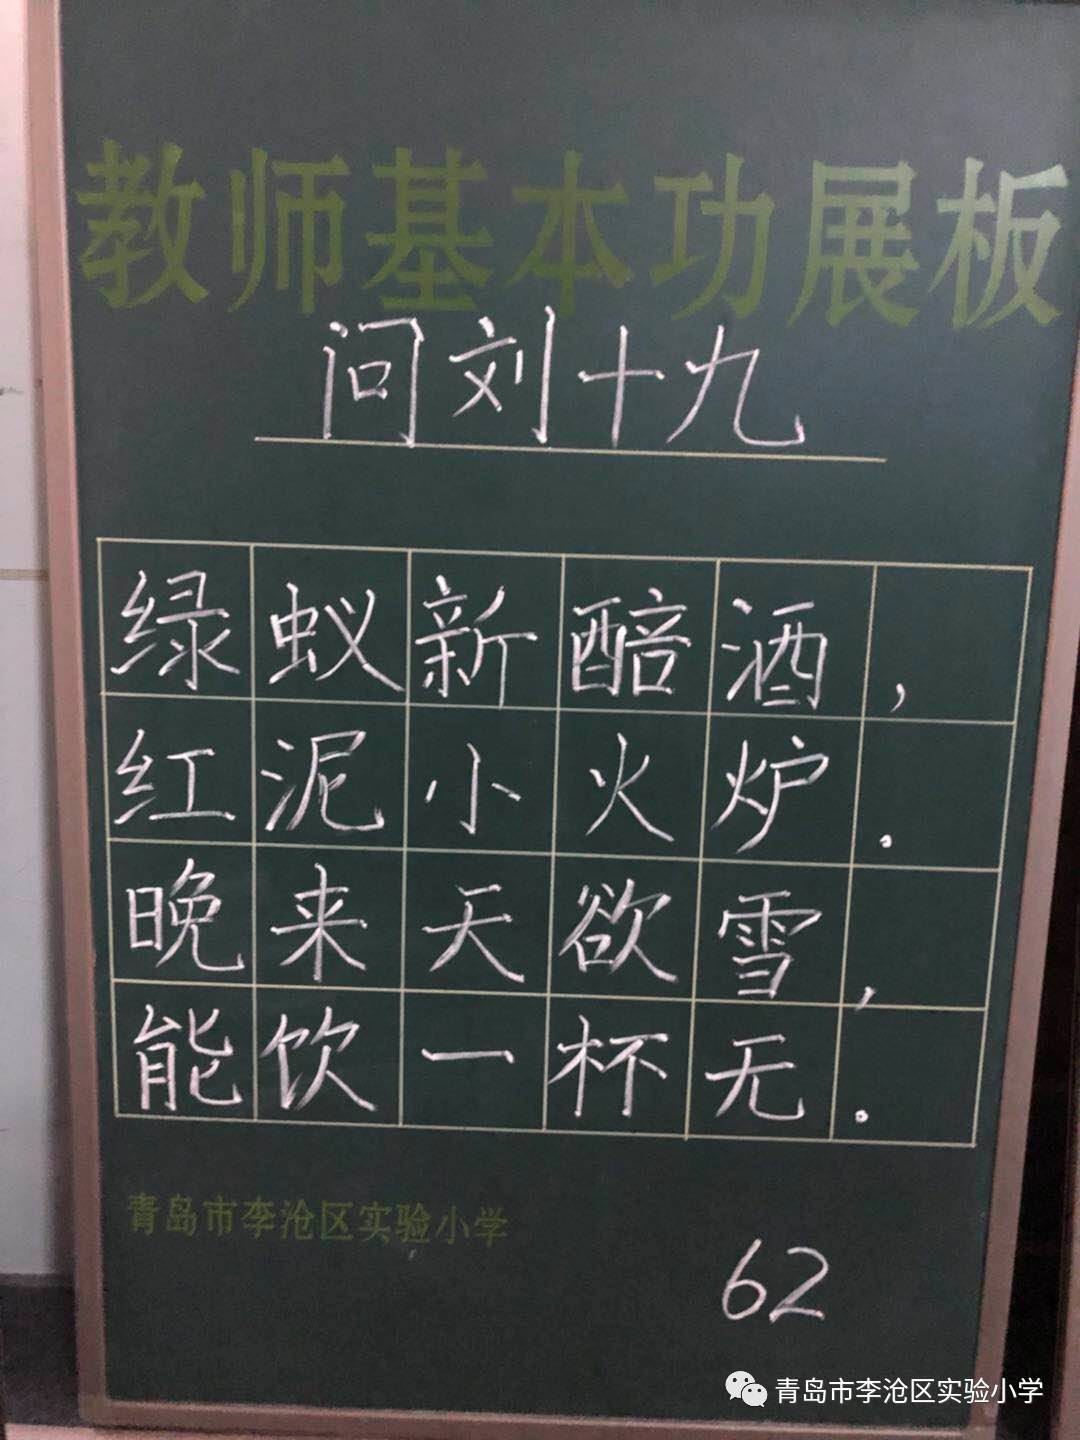 教师基本功展板
问刘十九
绿蚁新醅酒，
红泥小火炉.
晚来天欲雪，
能饮一杯无.
青岛市李沧区实验小学
62
青岛市李沧区实验小学